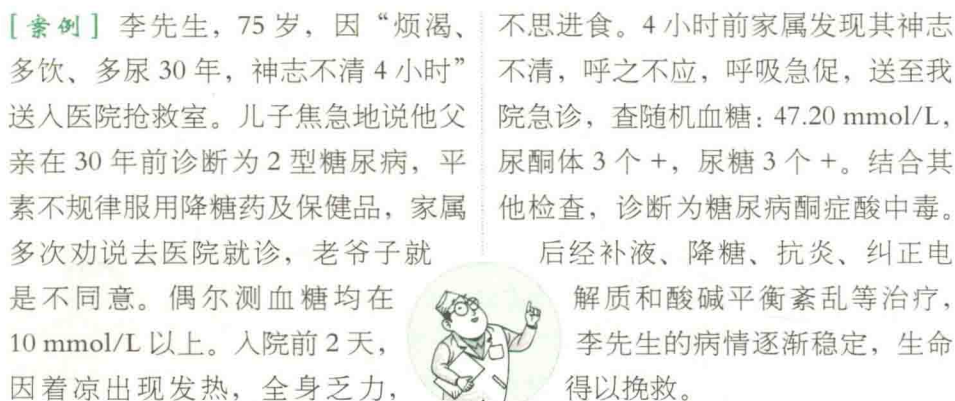 [案例] 李先生，75 岁，因“烦渴、
多饮、多尿 30 年，神志不清 4 小时”
送入医院抢救室。儿子焦急地说他父
亲在 30 年前诊断为 2 型糖尿病，平
素不规律服用降糖药及保健品，家属
多次劝说去医院就诊，老爷子就
是不同意。偶尔测血糖均在
10 mmol/L 以上。入院前 2 天，
因着凉出现发热，全身乏力，
不思进食。4 小时前家属发现其神志
不清，呼之不应，呼吸急促，送至我
院急诊，查随机血糖：47.20 mmol/L，
尿酮体 3 个 +，尿糖 3 个 +。结合其
他检查，诊断为糖尿病酮症酸中毒。
后经补液、降糖、抗炎、纠正电
解质和酸碱平衡紊乱等治疗，
李先生的病情逐渐稳定，生命
得以挽救。